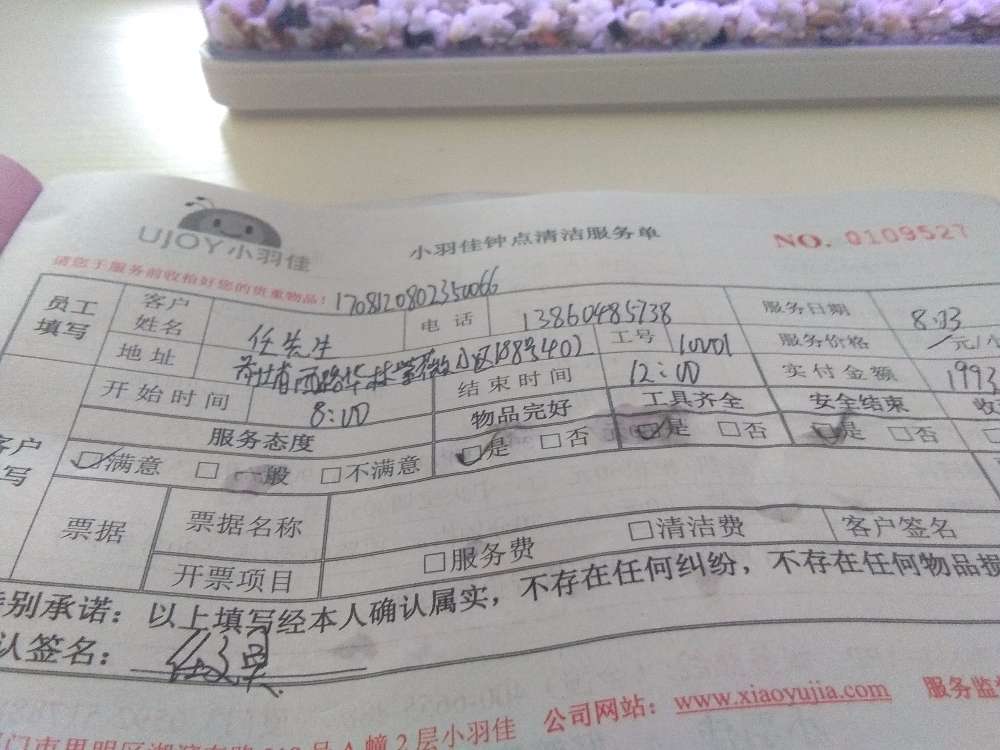 UJOY小羽佳
小羽佳钟点清洁服务单
NO. 0109527
请您于服务前收拾好您的贵重物品！
1708120802350066
员工填写 客户姓名 任先生 电话 13860485738 服务日期 8.03
地址 小区188号402 工号 服务价格 元/
开始时间 8:00 结束时间 12:00 实付金额 1993
服务态度 物品完好 工具齐全 安全结束
□满意 □一般 □不满意 □是 □否 □是 □否 □是 □否
票据 票据名称
开票项目 □服务费 □清洁费 客户签名
特别承诺：以上填写经本人确认属实，不存在任何纠纷，不存在任何物品损
认签名：
公司网站：www.xiaoyujia.com 服务监
号A幢2层小羽佳